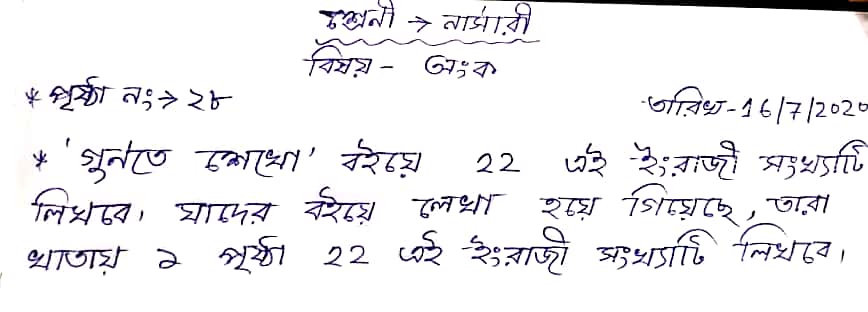 শ্রেনী → নার্সারী
বিষয় - অংক
* পৃষ্ঠা নং → ২৮
তারিখ - 16/7/2020
* 'গুনতে শেখো' বইয়ে 22 এই ইংরাজী সংখ্যাটি
লিখবে। যাদের বইয়ে লেখা হয়ে গিয়েছে, তারা
খাতায় ১ পৃষ্ঠা 22 এই ইংরাজী সংখ্যাটি লিখবে।